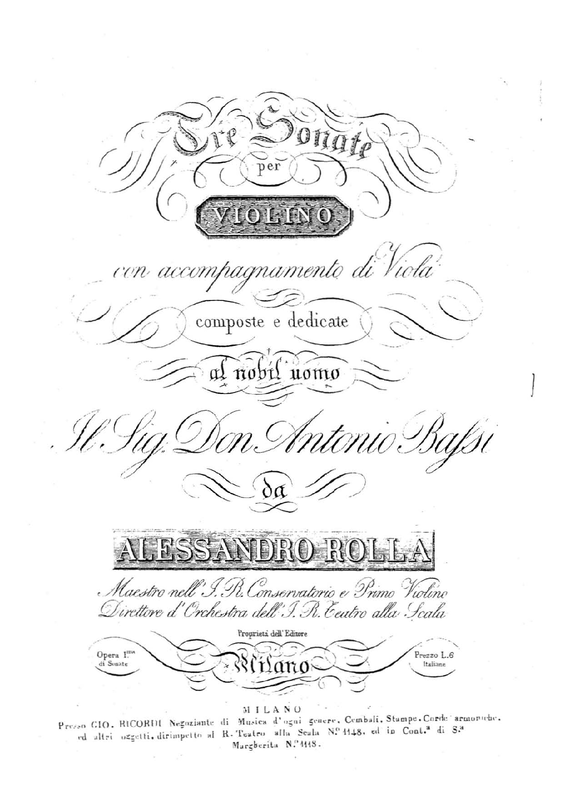 Tre Sonate
per
VIOLINO
con accompagnamento di Viola
composte e dedicate
al nobil uomo
Il Sig. Don Antonio Baſsi
da
ALESSANDRO ROLLA
Maestro nell' I. R. Conservatorio e Primo Violino
Direttore d'Orchestra dell' I. R. Teatro alla Scala
Proprietà dell' Editore
Opera 1.ma
di Sonate
Milano
Prezzo L.6
Italiane
MILANO
Presso GIO. RICORDI Negoziante di Musica d'ogni genere, Cembali, Stampe, Corde armoniche,
ed altri oggetti, dirimpetto al R. Teatro alla Scala N.º 1148. ed in Cont.ª di S.ª
Margherita N.º 1118.